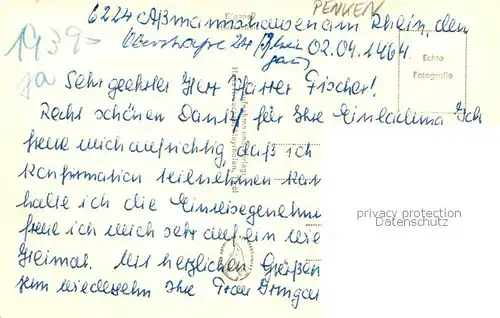 PENKEN
6224 Aßmannshausen am Rhein, den
02.04.1964.
1939=
ja
Echte
Fotografie
Sehr geehrter Herr Pfarrer Fischer!
Recht schönen Dank für Ihre Einladung Ich
freue mich aufrichtig, daß ich
Konfirmation teilnehmen kan
halte ich die Einreisegenehm
freue ich mich sehr auf ein Wie
Heimat. Mit herzlichen Grüßen
Ihre Frau Irmgar
privacy protection
Datenschutz